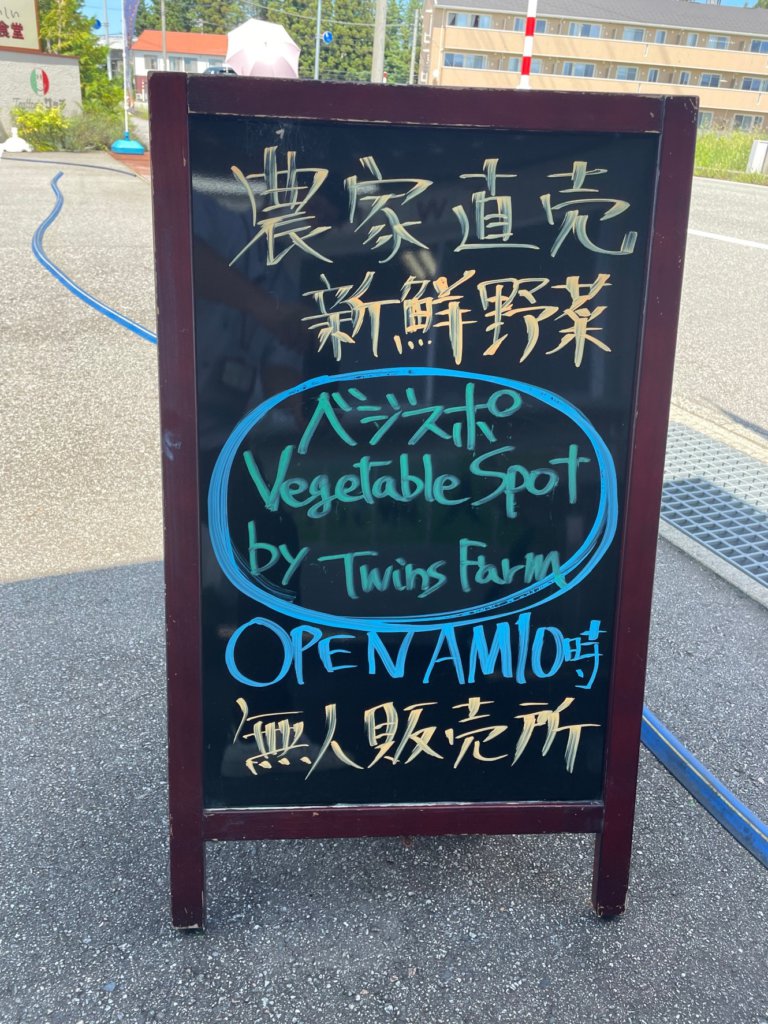 農家直売
新鮮野菜
ベジスポ
Vegetable Spot
by Twins Farm
OPEN AM10時
無人販売所
食堂